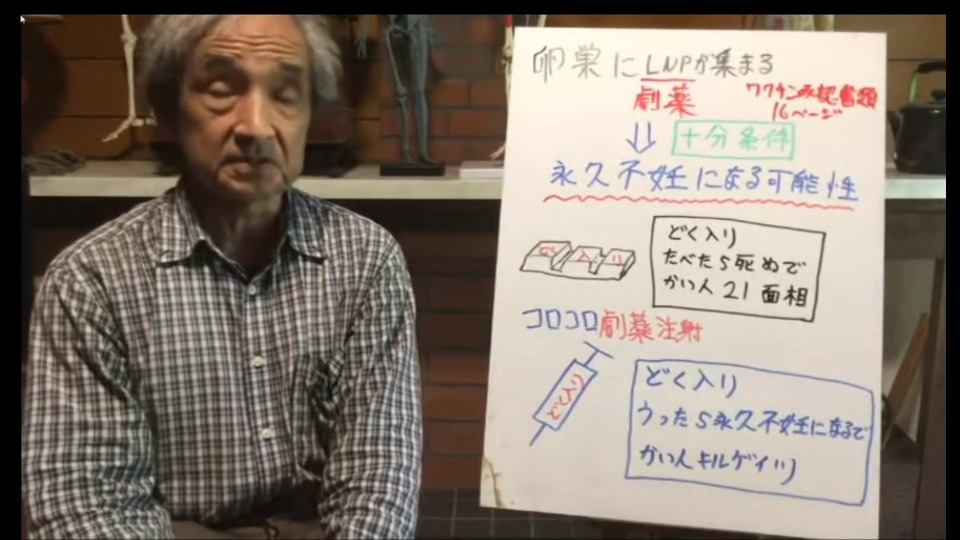 卵巣にLNPが集まる
劇薬
ワクチン承認書類
16ページ
十分条件
永久不妊になる可能性
どく 入 り
どく入り
たべたら死ぬで
かい人21面相
コロコロ劇薬注射
どく入り
どく入り
うったら永久不妊になるで
かい人キルゲイツ